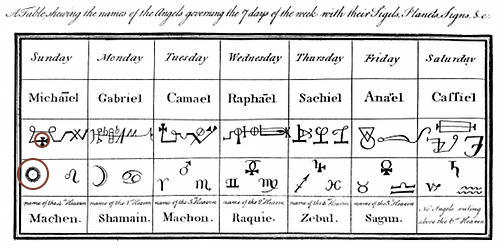 A Table shewing the names of the Angels governing the 7 days of the week with their Sigils, Planets, Signs, &c.
Sunday Monday Tuesday Wednesday Thursday Friday Saturday
Michaïel Gabriel Camael Raphaël Sachiel Anaël Caffiel
☽ ♂ ☿ ♃ ♀ ♄
♌ ♋ ♈ ♏ ♊ ♍ ♐ ♓ ♉ ♎ ♑ ♒
name of the 4th Heaven name of the 1st Heaven name of the 5th Heaven name of the 2d Heaven name of the 6th Heaven name of the 3d Heaven No Angels ruling
Machen. Shamain. Machon. Raquie. Zebul. Sagun. above the 6th Heaven